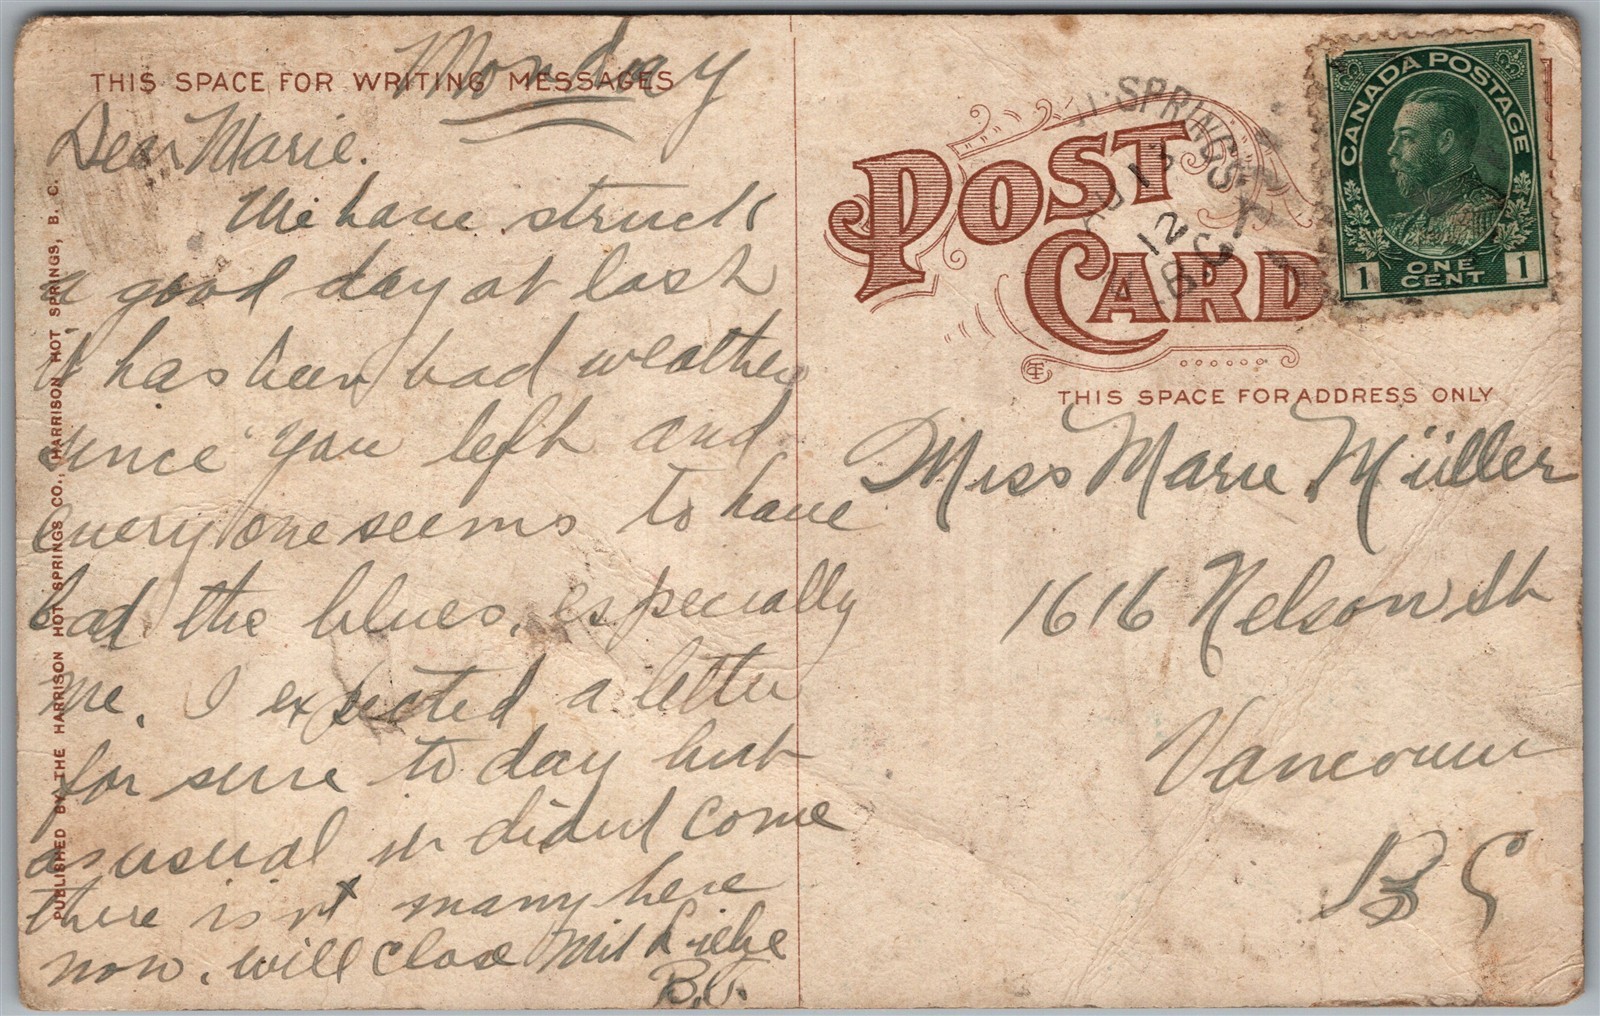 Monday
THIS SPACE FOR WRITING MESSAGES
Dear Marie.
We have struck
a good day at last
it has been bad weather
since you left and
every one seems to have
bad the blues, especially
me. I expected a letter
for sure to day but
as usual it didnt come
there isnt many here
now. will close Mit Liebe
B.T.
PUBLISHED BY THE HARRISON HOT SPRINGS CO., HARRISON HOT SPRINGS, B. C.
POST CARD
THIS SPACE FOR ADDRESS ONLY
CANADA POSTAGE
1 ONE CENT 1
SPRINGS
AU 13
12
B.C.
Miss Marie Müller
1616 Nelson St
Vancouver
B C